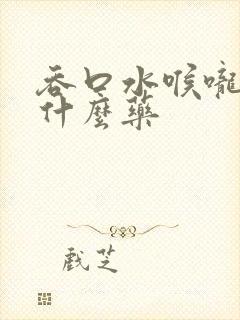 吞口水喉嚨
什麼藥
戲芝